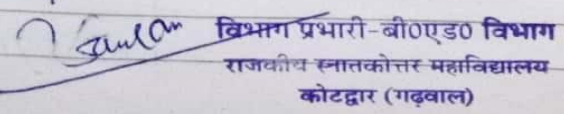 विभाग प्रभारी-बी०एड० विभाग
राजकीय स्नातकोत्तर महाविद्यालय
कोटद्वार (गढ़वाल)